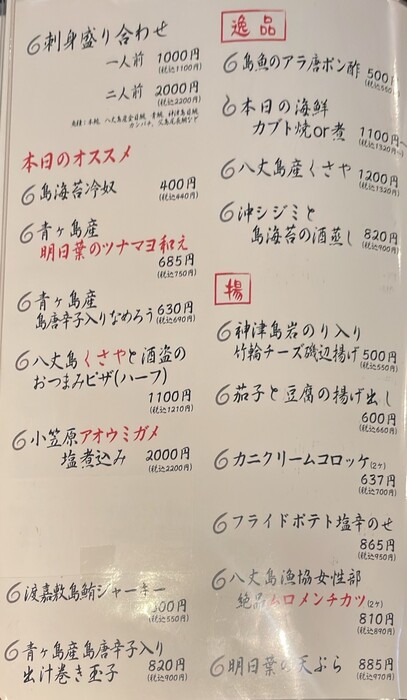 刺身盛り合わせ
一人前 1000円
(税込1100円)
二人前 2000円
(税込2200円)
本日のオススメ
島海苔冷奴 400円
(税込440円)
青ヶ島産
明日葉のツナマヨ和え
685円
(税込750円)
青ヶ島産
島唐辛子入りなめろう 630円
(税込690円)
八丈島くさやと酒盗の
おつまみピザ(ハーフ)
1100円
(税込1210円)
小笠原アオウミガメ
塩煮込み 2000円
(税込2200円)
渡嘉敷島鮪ジャーキー
00円
(税込550円)
青ヶ島産島唐辛子入り
出汁巻き玉子 820円
(税込900円)
逸品
島魚のアラ唐ポン酢 500円
(税込550
本日の海鮮
カブト焼or煮 1100円~
(税込1320円~)
八丈島産くさや 1200円
(税込1320円)
沖シジミと
島海苔の酒蒸し 820円
(税込900円)
揚
神津島岩のり入り
竹輪チーズ磯辺揚げ 500円
(税込550円)
茄子と豆腐の揚げ出し
600円
(税込660円)
カニクリームコロッケ(2ケ)
637円
(税込700円)
フライドポテト塩辛のせ
865円
(税込950円)
八丈島漁協女性部
絶品ムロメンチカツ(2ケ)
810円
(税込890円)
明日葉の天ぷら 885円
(税込970円)